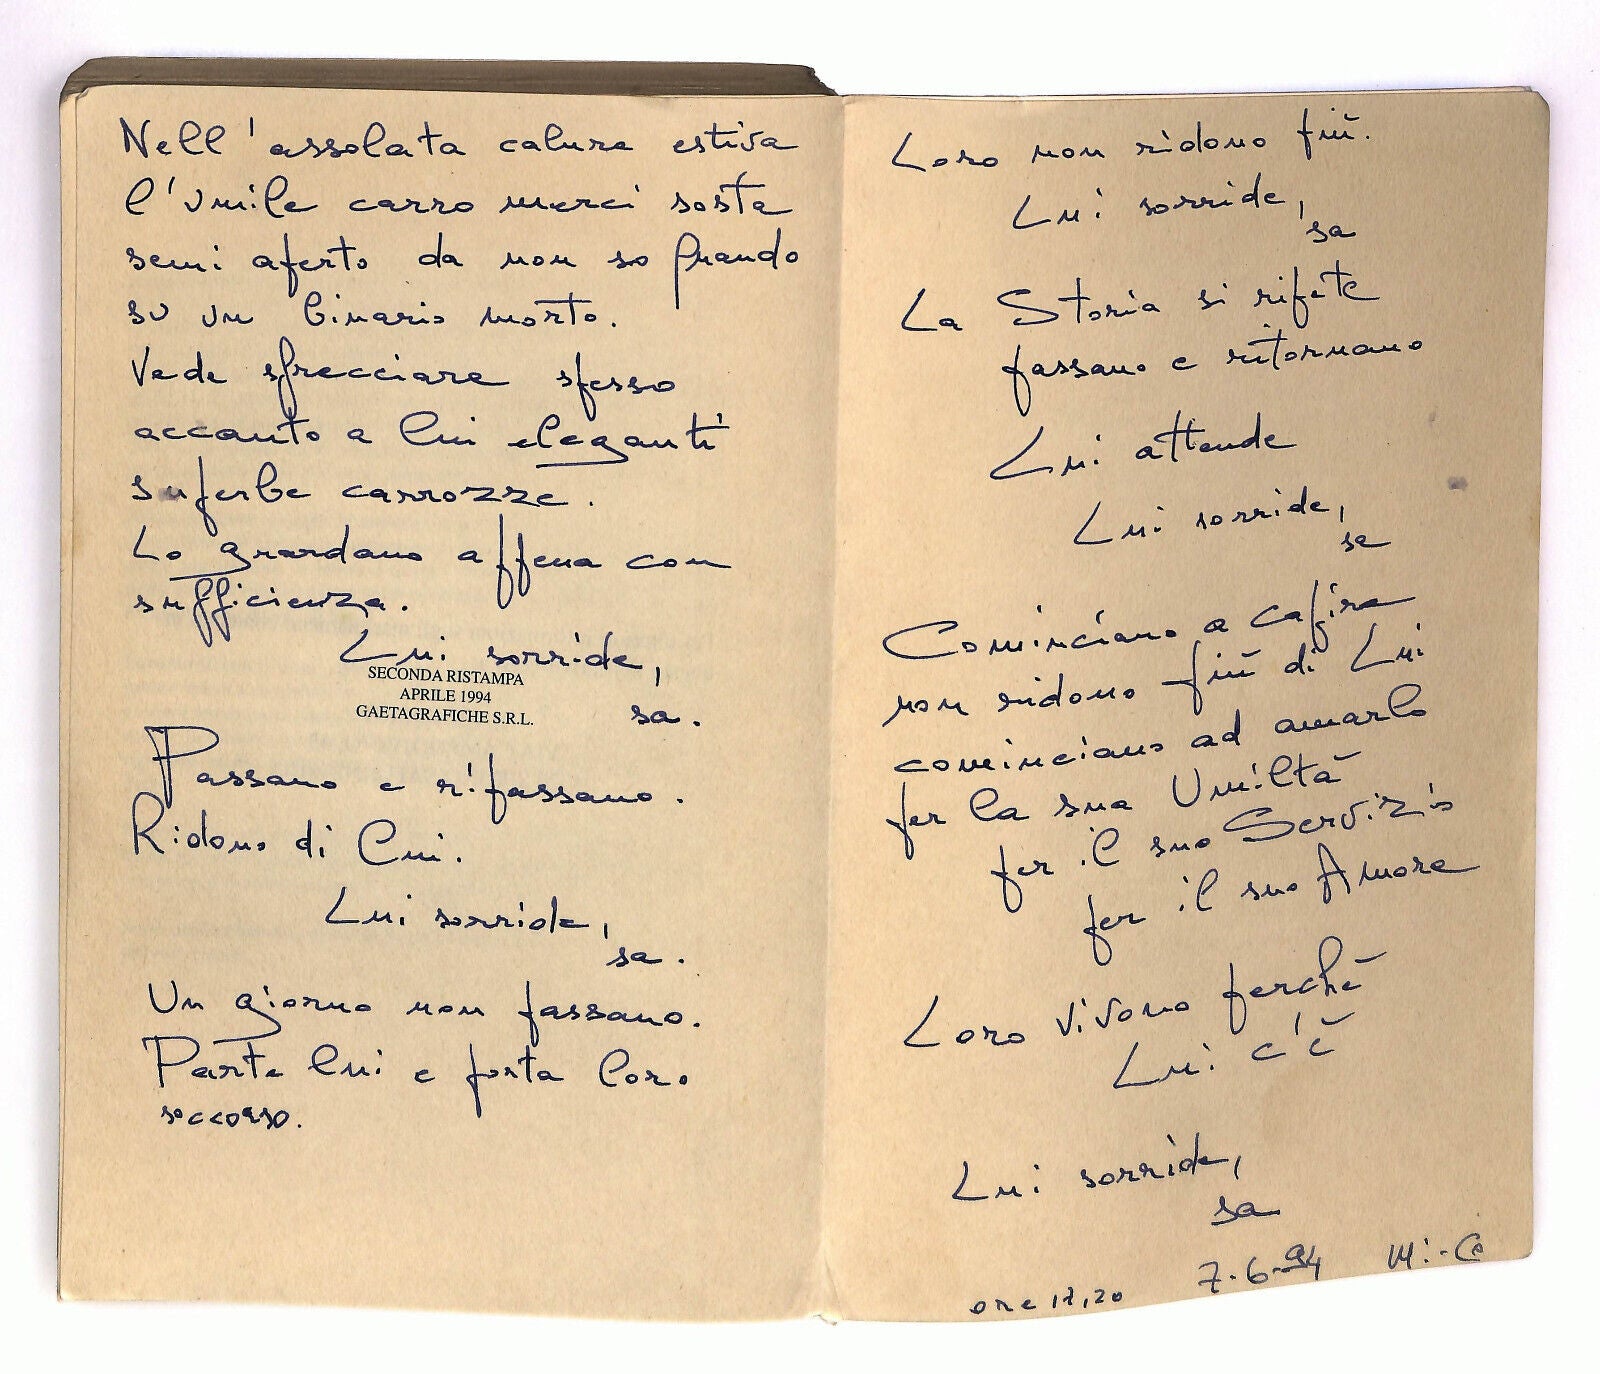 Nell'assolata calura estiva
l'umile carro merci sosta
semi aperto da non so quando
su un binario morto.
Vede sfrecciare spesso
accanto a lui eleganti
superbe carrozze.
Lo guardano appena con
sufficienza.
Lui sorride,
SECONDA RISTAMPA
APRILE 1994
GAETAGRAFICHE S.R.L.
sa.
Passano e ripassano.
Ridono di Lui.
Lui sorride,
sa.
Un giorno non passano.
Parte lui e porta loro
soccorso.
Loro non ridono più.
Lui sorride,
sa
La Storia si ripete
passano e ritornano
Lui attende
Lui sorride,
sa
Cominciano a capire
non ridono più di Lui
cominciano ad amarlo
per la sua Umiltà
per il suo Servizio
per il suo Amore
Loro vivono perchè
Lui c'è
Lui sorride,
sa
7-6-94 Mi-Co
ore 17,20